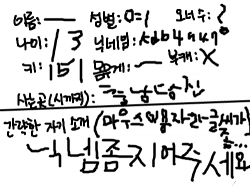 이름: — 성별: 0=1 오너수: ?
나이: 13 닉네임:
키: 151 몸무게: — 부캐: X
사는곳(시까지): 충남당진
간략한 자기 소개 (마우스 이용자라 글씨가
좀...
닉넴좀지어주세요